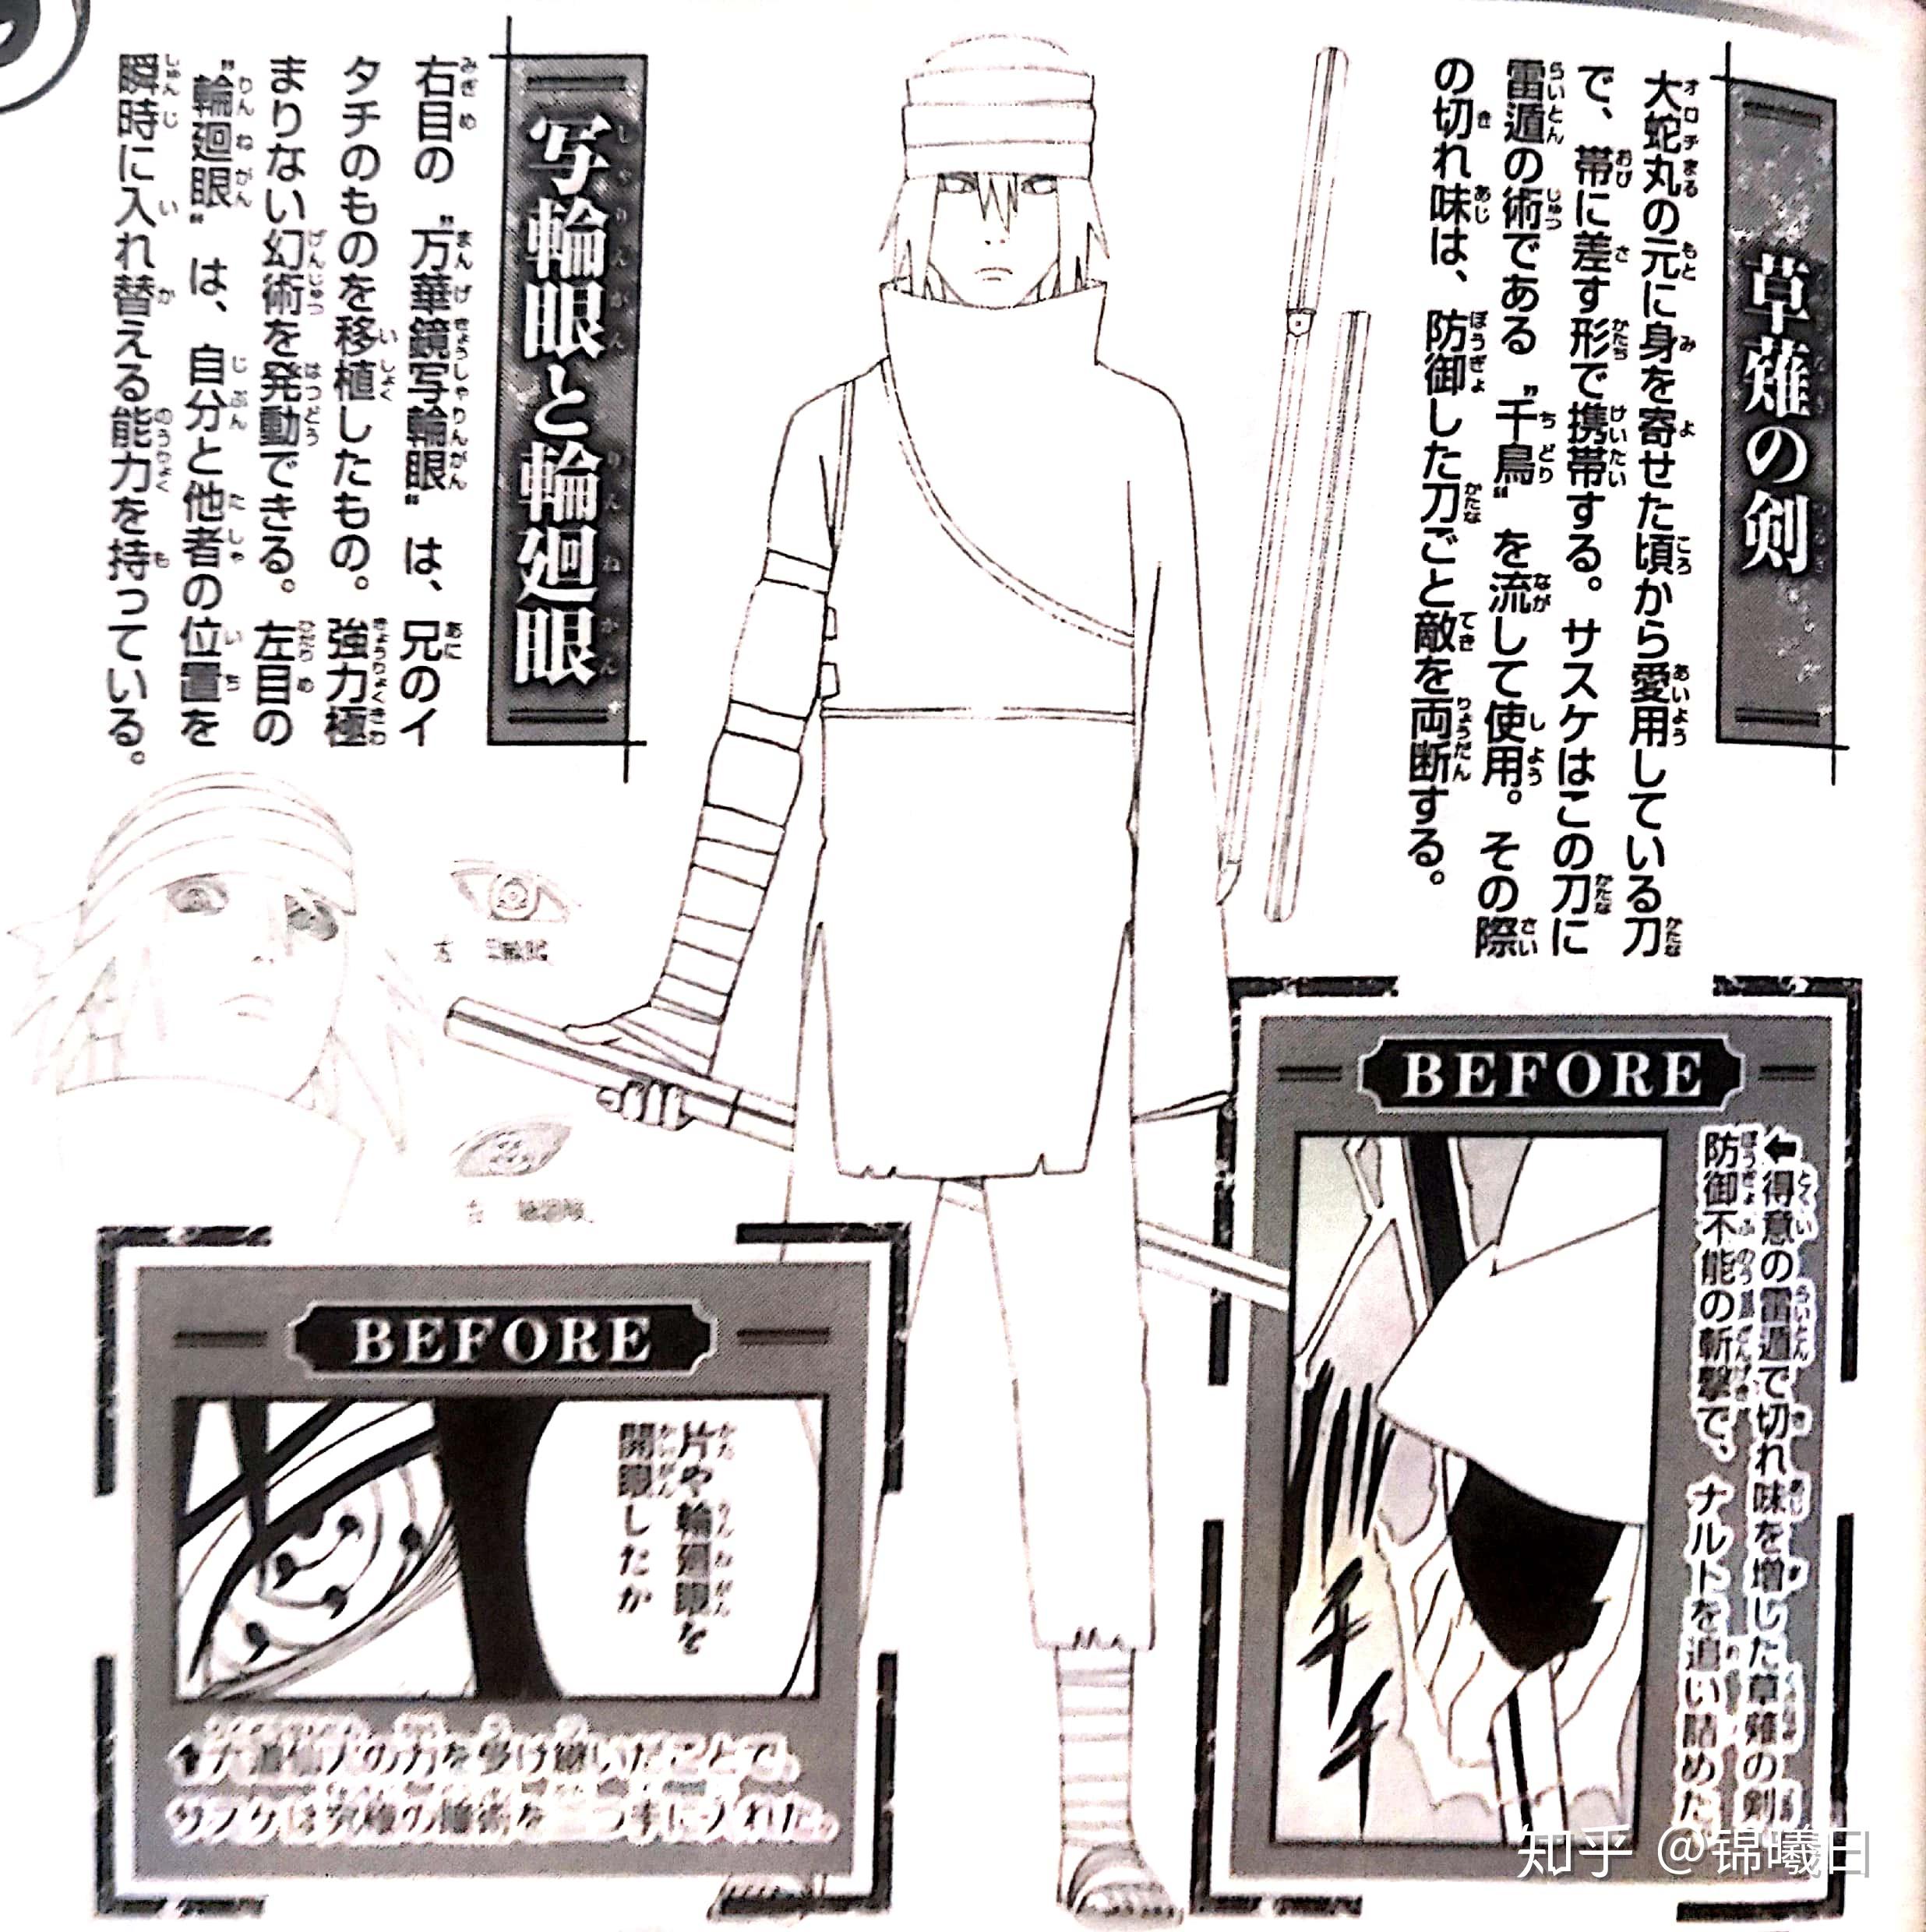 草薙の剣
大蛇丸の元に身を寄せた頃から愛用している刀
で、帯に差す形で携帯する。サスケはこの刀に
雷遁の術である〝千鳥〟を流して使用。その際
の切れ味は、防御した刀ごと敵を両断する。
BEFORE
⬅得意の雷遁で切れ味を増した草薙の剣
防御不能の斬撃で、ナルトを追い詰めた
チチチ
写輪眼と輪廻眼
右目の〝万華鏡写輪眼〟は、兄のイ
タチのものを移植したもの。強力極
まりない幻術を発動できる。左目の
〝輪廻眼〟は、自分と他者の位置を
瞬時に入れ替える能力を持っている。
BEFORE
片や輪廻眼を
開眼したか
⬆六道仙人の力を受け継いだことで、
サスケは究極の瞳術を二つ手に入れた。
知乎 @锦曦日